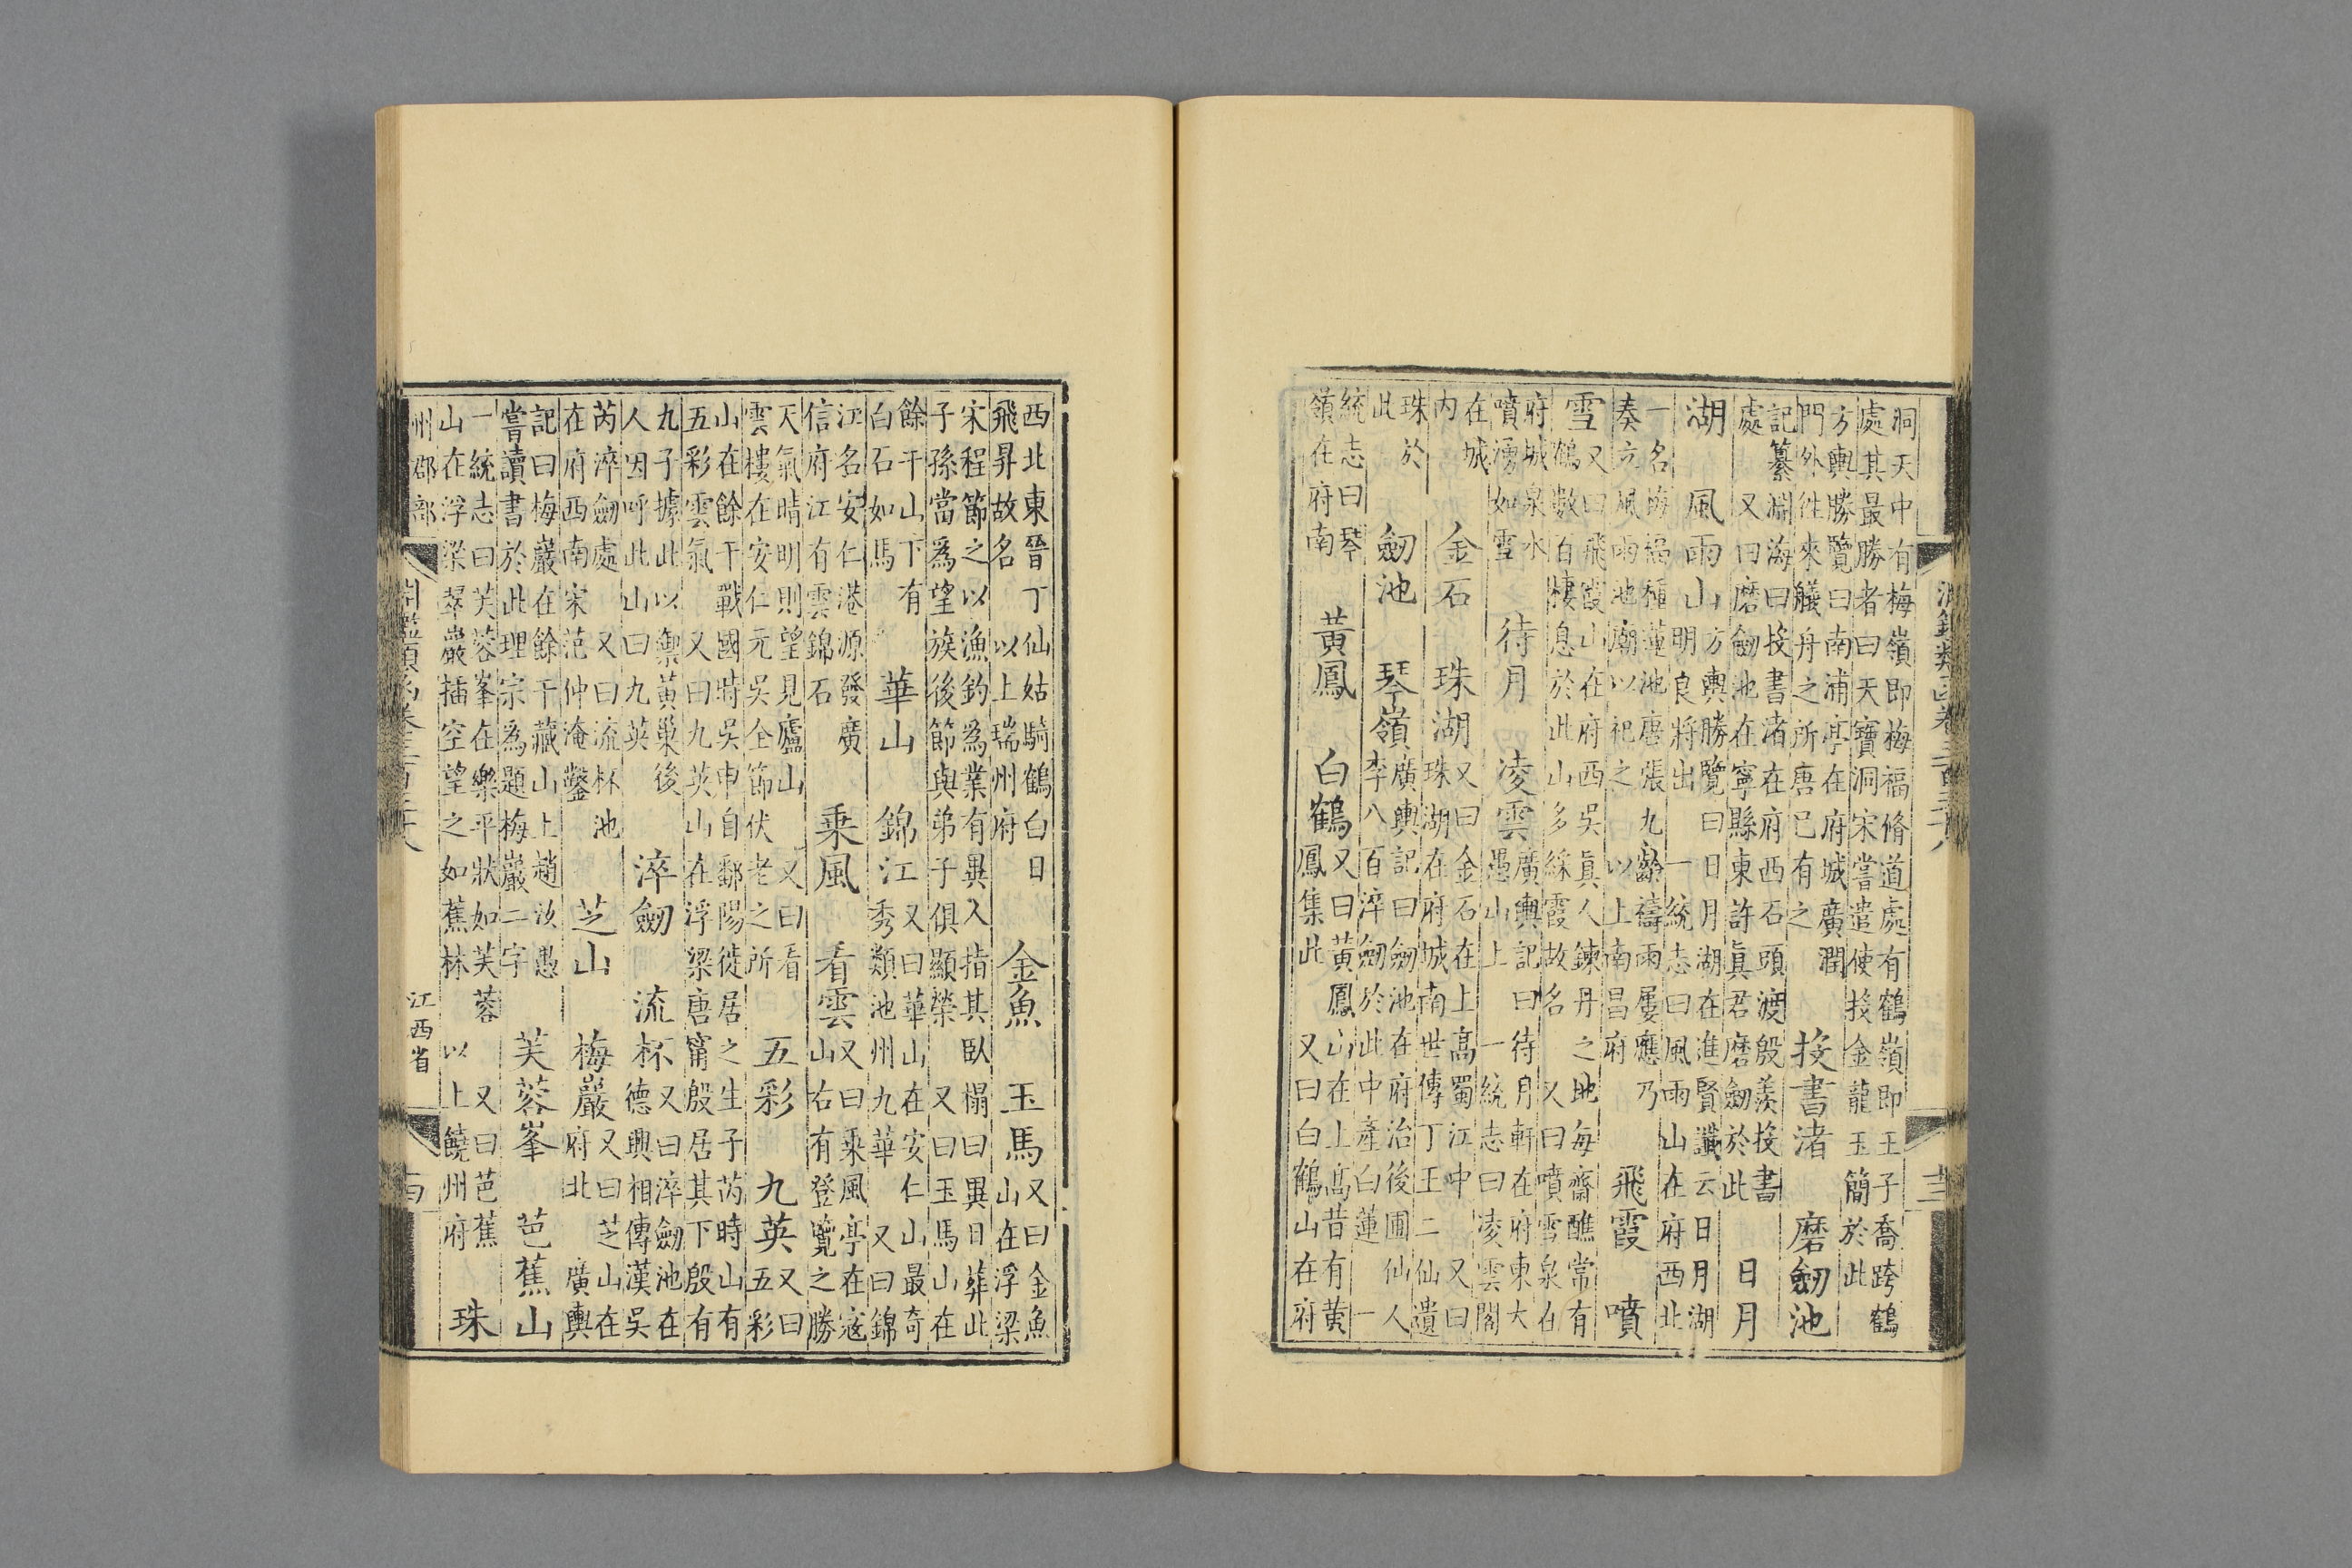 淵鑑類函卷三百三十八
十三
洞天中有梅嶺即梅福脩道處有鶴嶺即王子喬跨鶴
處其最勝者曰天寶洞宋嘗遣使投金龍玉簡於此
方輿勝覽曰南浦亭在府城廣潤
門外往來艤舟之所唐已有之
投書渚 磨劒池
記纂淵海曰投書渚在府西石頭渡殷羨投書
處 又曰磨劒池在寧縣東許眞君磨劒於此
日月
湖 風雨山
方輿勝覽曰日月湖在進賢讖云日月湖
明良將出 一統志曰風雨山在府西北
一名梅福種蓮池唐張九齡禱雨屢應乃
奏立風雨池廟以祀之 以上南昌府
飛霞 噴
雪
又曰飛霞山在府西吳眞人鍊丹之地每齋醮常有
鶴數百棲息於此山多綵霞故名 又曰噴雪泉在
府城泉水
噴湧如雪
待月 凌雲
廣輿記曰待月軒在府東大
愚山上 一統志曰凌雲閣
在城
内
金石 珠湖
又曰金石在上高蜀江中 又曰
珠湖在府城南世傳丁王二仙遺
珠於
此
劒池 琴嶺
廣輿記曰劒池在府治後圃仙人
李八百淬劒於此中產白蓮 一
統志曰琴
嶺在府南
黃鳳 白鶴
又曰黃鳳山在上高昔有黃
鳳集此 又曰白鶴山在府
西北東晉丁仙姑騎鶴白日
飛昇故名 以上瑞州府
金魚 玉馬
又曰金魚
山在浮梁
宋程節之以漁釣為業有異人指其臥榻曰異日葬此
子孫當為望族後節與弟子俱顯榮 又曰玉馬山在
餘干山下有
白石如馬
華山 錦江
又曰華山在安仁山最奇
秀類池州九華 又曰錦
江名安仁港源發廣
信府江有雲錦石
乘風 看雲
又曰乘風亭在宼
山右有登覽之勝
天氣晴明則望見廬山 又曰看
雲樓在安仁元吳全節伏老之所
五彩 九英
又曰
五彩
山在餘干戰國時吳申自鄱陽徙居之生子芮時山有
五彩雲氣 又曰九英山在浮梁唐甯殷居其下殷有
九子據此以禦黃巢後
人因呼此山曰九英
淬劒 流杯
又曰淬劒池在
德興相傳漢吳
芮淬劒處 又曰流杯池
在府西南宋范仲淹鑿
芝山 梅巖
又曰芝山在
府北 廣輿
記曰梅巖在餘干藏山上趙汝愚
嘗讀書於此理宗為題梅巖二字
芙蓉峯 芭蕉山
一統志曰芙蓉峯在樂平狀如芙蓉 又曰芭蕉
山在浮梁翠巖插空望之如蕉林 以上饒州府
珠
州郡部
淵鑑類函卷三百三十八
江西省
十四